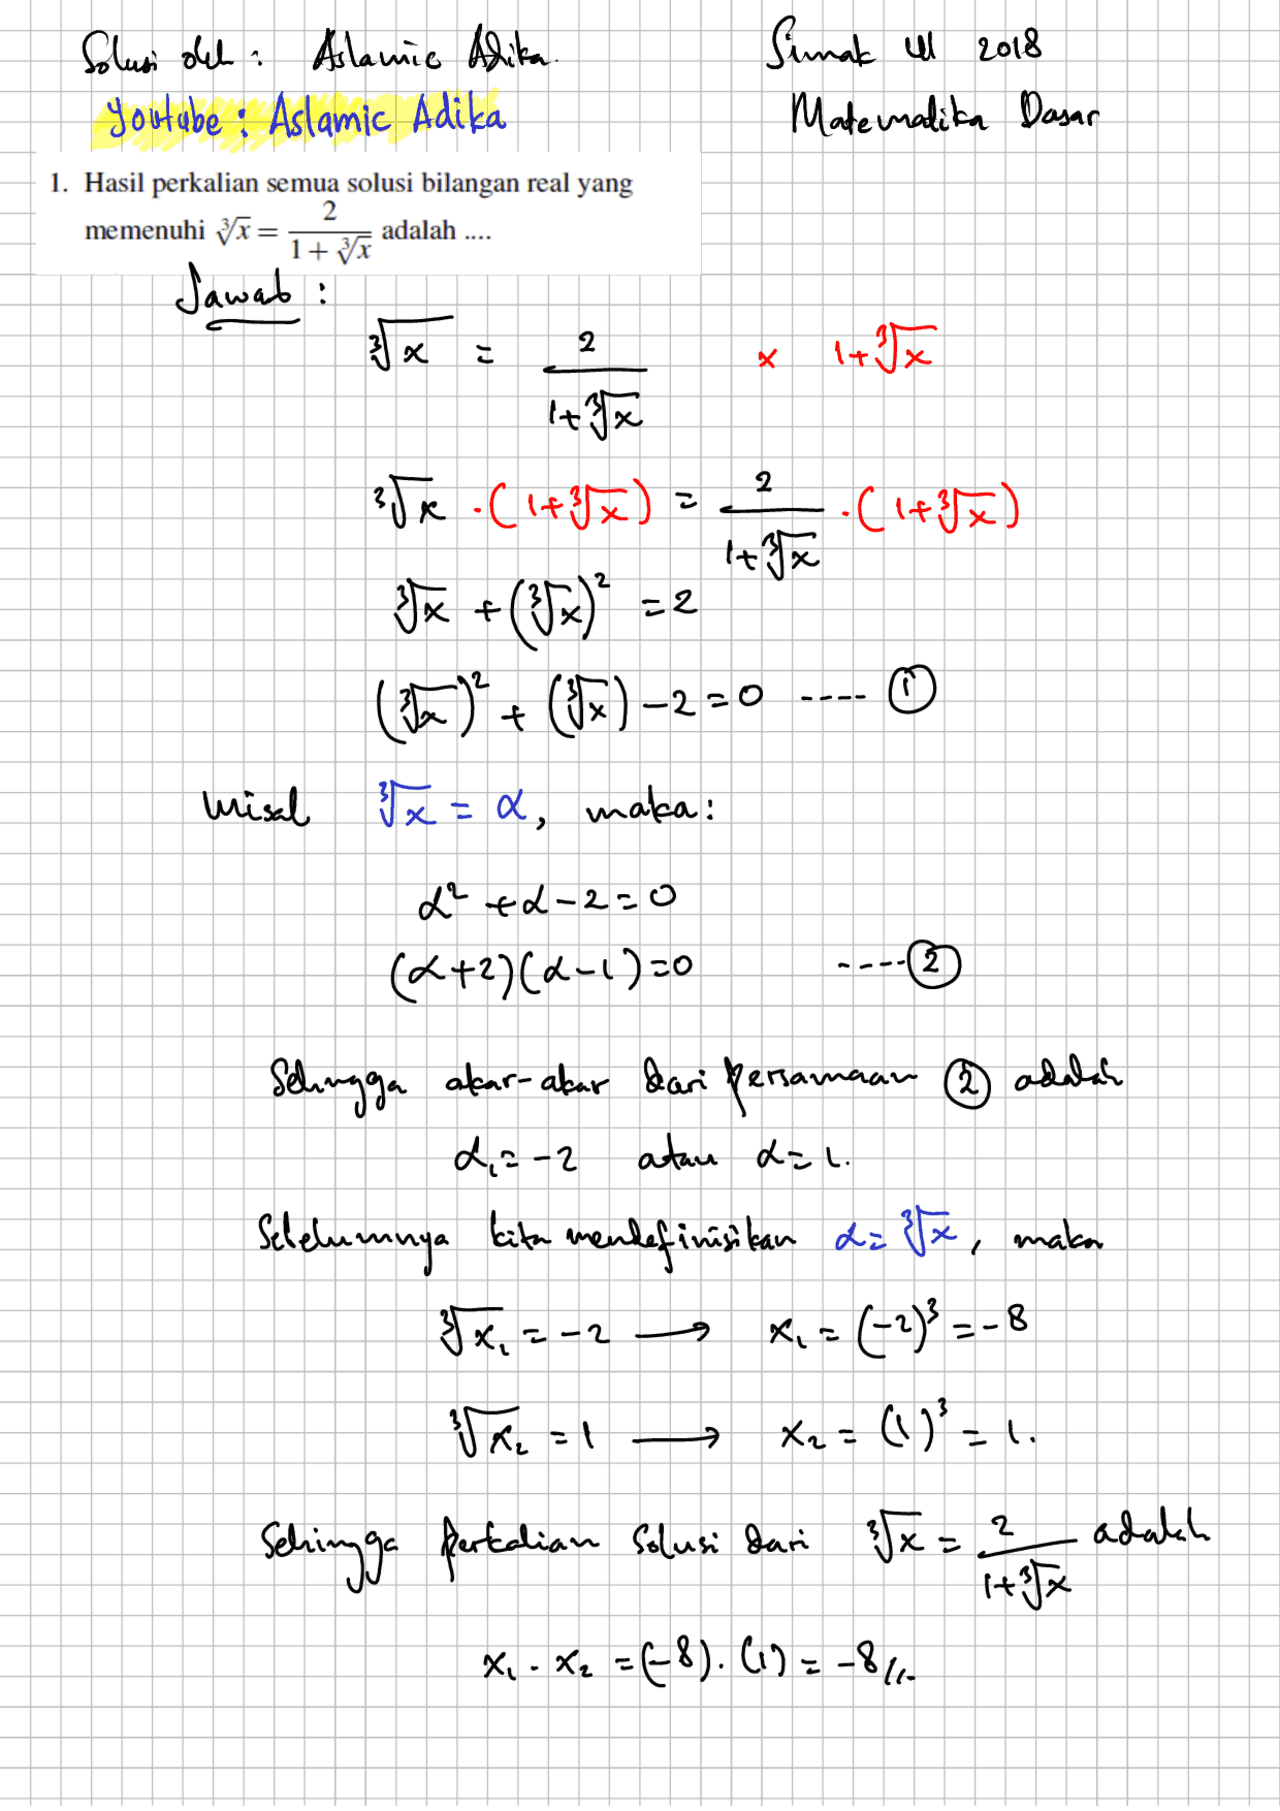 Solusi oleh : Aslamic Adika.
Simak UI 2018
Youtube : Aslamic Adika
Matematika Dasar
1. Hasil perkalian semua solusi bilangan real yang
memenuhi ∛x = 2/(1 + ∛x) adalah ....
Jawab :
∛x = 2/(1+∛x) × 1+∛x
∛x · (1+∛x) = 2/(1+∛x) · (1+∛x)
∛x + (∛x)² = 2
(∛x)² + (∛x) − 2 = 0 ---- ①
Misal ∛x = α, maka :
α² + α − 2 = 0
(α+2)(α−1) = 0 ---- ②
Sehingga akar-akar dari persamaan ② adalah
α₁ = −2 atau α = 1.
Sebelumnya kita mendefinisikan α = ∛x, maka
∛x₁ = −2 ⟶ x₁ = (−2)³ = −8
∛x₂ = 1 ⟶ x₂ = (1)³ = 1.
Sehingga perkalian solusi dari ∛x = 2/(1+∛x) adalah
x₁ · x₂ = (−8) . (1) = −8 //.